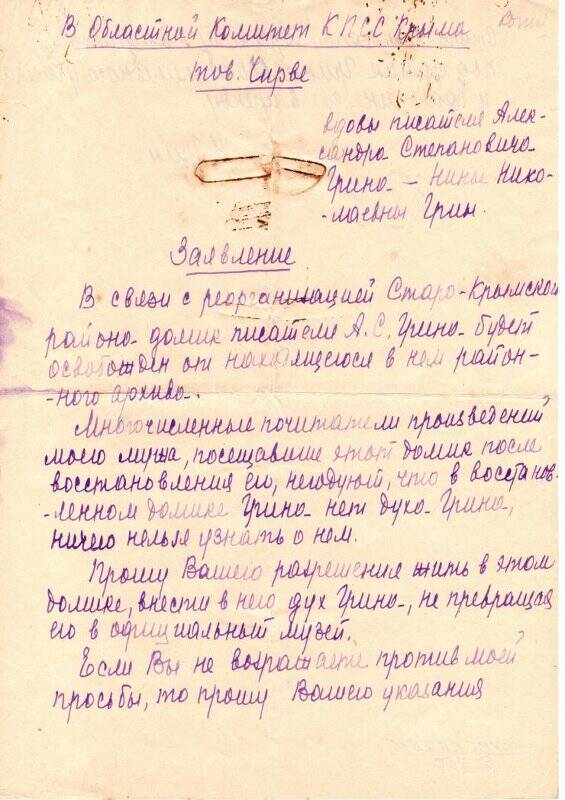 В Областной Комитет КПСС Крыма
тов. Чирве
вдовы писателя Алек-
сандра Степановича
Грина — Нины Нико-
-лаевны Грин.
Заявление
В связи с реорганизацией Старо-Крымского
района домик писателя А.С. Грина будет
освобожден от находящегося в нем район-
-ного архива.
Многочисленные почитатели произведений
моего мужа, посещавшие этот домик после
восстановления его, негодуют, что в восстанов-
-ленном домике Грина нет духа Грина,
ничего нельзя узнать о нем.
Прошу Вашего разрешения жить в этом
домике, внести в него дух Грина, не превращая
его в официальный музей.
Если Вы не возражаете против моей
просьбы, то прошу Вашего указания